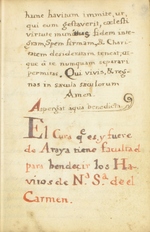 hunc habitum immitte, ut
qui eum gestaverit, cælesti
virtute munitus fidem inte-
gram, Spem firmam, & Chari-
tatem desideratam teneat, at-
que à te nunquam separari
permittas. Qui vivis, & reg-
nas in sæcula sæculorum
Amen.
Aspergat aqua benedicta
El Cura q.e es, y fuere
de Araya tiene facultad
para bendecir los Ha-
vitos de N.ª S.ª de el
Carmen.